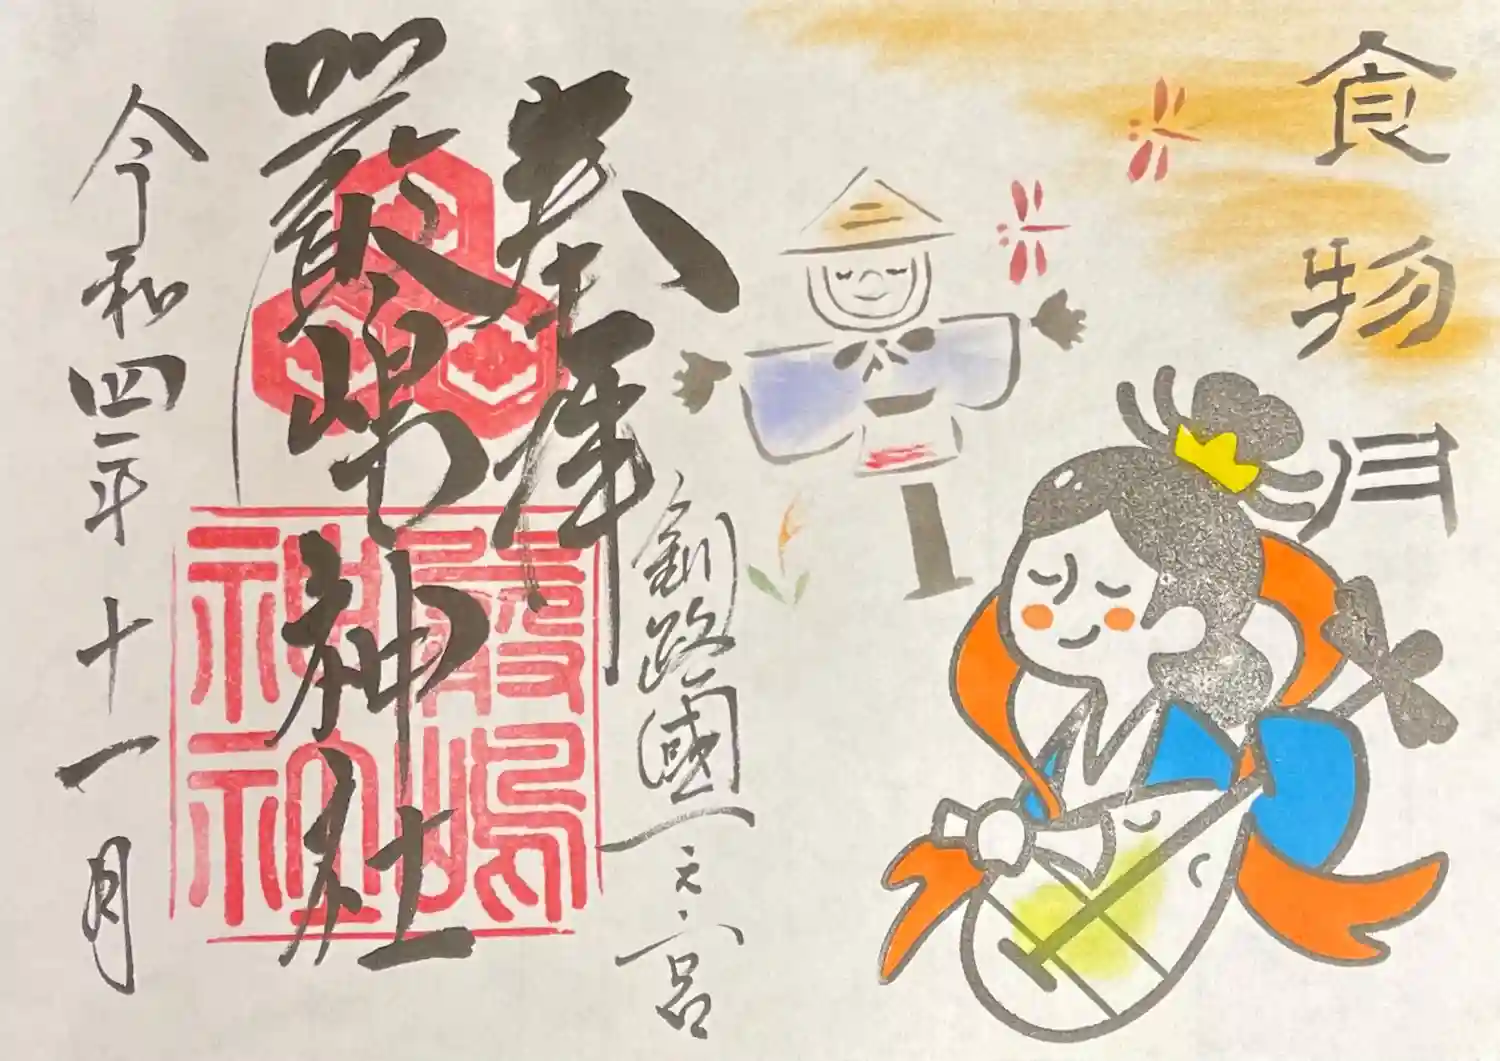 食物月
釧路國一之宮
奉拝
嚴嶋神社
嚴嶋
神社
令和四年十一月